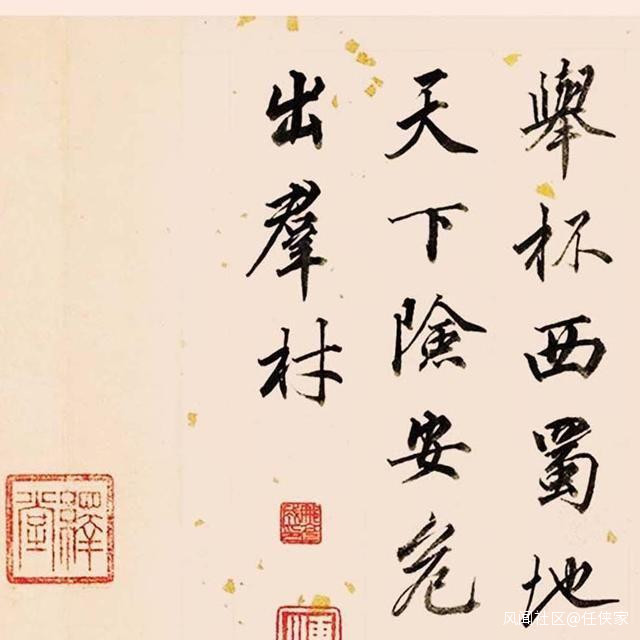 舉杯西蜀地
天下險安危
出羣材
繹堂
风闻社区@任侠家